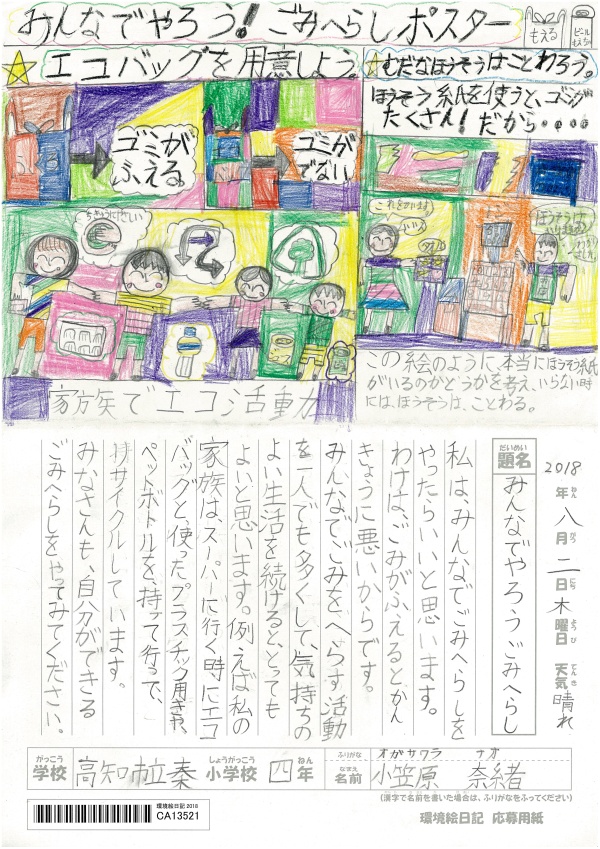 みんなでやろう!ごみへらしポスター
もえる
☆エコバッグを用意しよう。
☆むだなほうそうはことわろう。
ほうそう紙を使うと、ゴミが
たくさん!だから・・・・
ゴミが
ふえる。
ゴミが
でない
これを
家族でエコ活動
この絵のように、本当にほうそう紙
がいるのかどうかを考え、いらない時
には、ほうそうは、ことわる。
2018年八月二日木曜日 天気晴れ
ねん がつ にち ようび てんき
だいめい
題名 みんなでやろうごみへらし
私は、みんなでごみへらしを
やったらいいと思います。
わけは、ごみがふえるとかん
きょうに悪いからです。
みんなでごみをへらす活動
を一人でも多くして、気持ちの
よい生活を続けると、とっても
よいと思います。例えば私の
家族は、スーパーに行く時にエコ
バッグと、使ったプラスチック用きや、
ペットボトルを、持って行って、
リサイクルしています。
みなさんも、自分ができる
ごみへらしをやってみてください。
がっこう しょうがっこう ねん ふりがな オガサワラ ナオ
学校 高知市立秦 小学校 四年 なまえ 名前 小笠原 奈緒
(漢字で名前を書いた場合は、ふりがなをふってください)
環境絵日記 2018
CA13521
環境絵日記 応募用紙